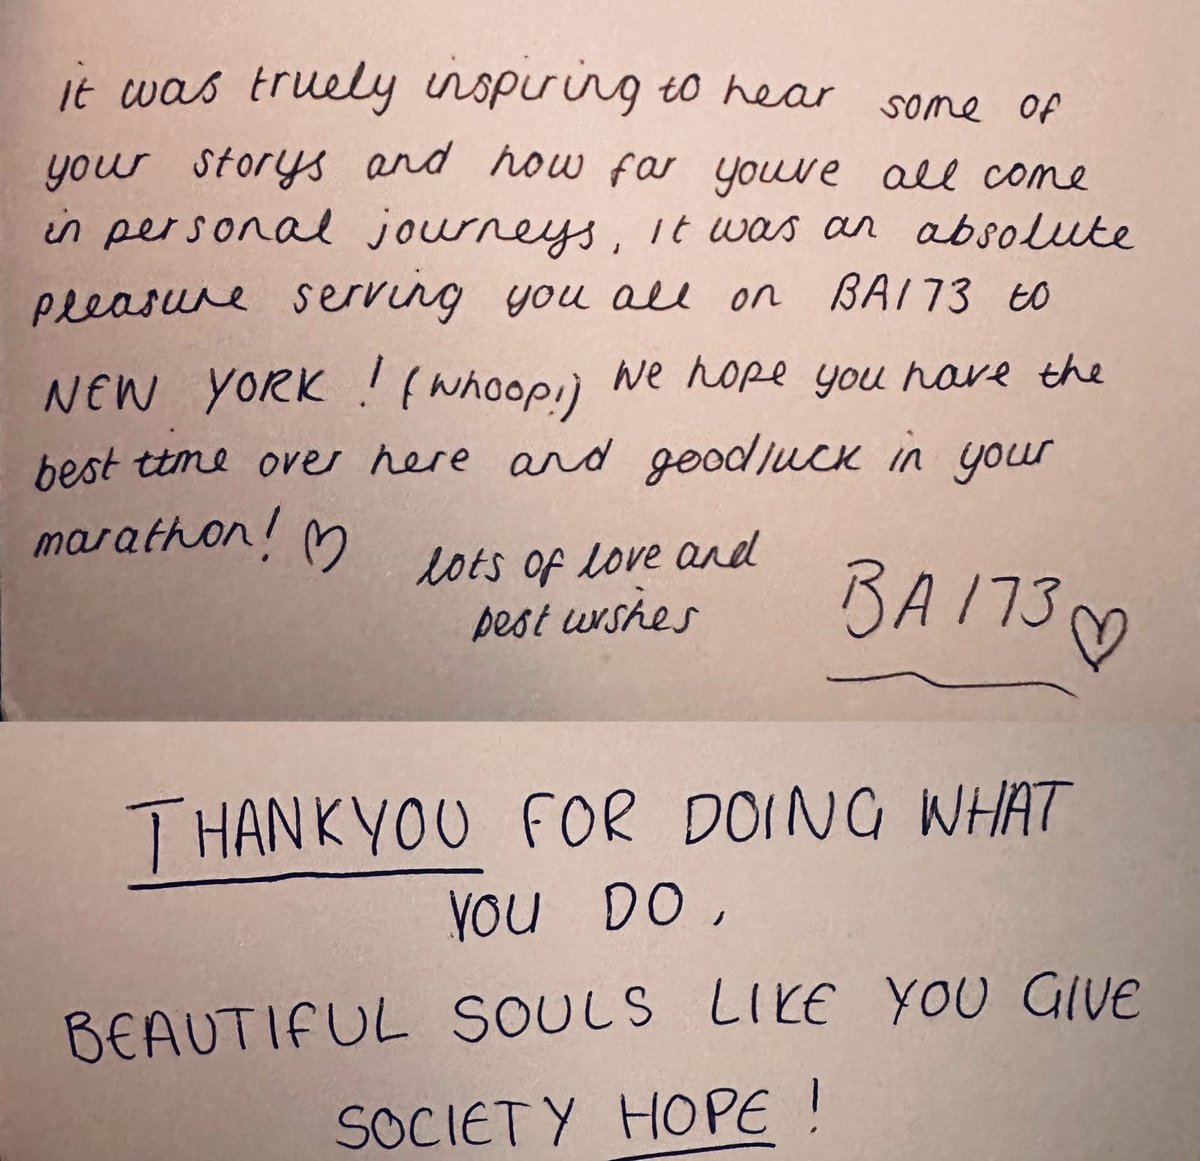 it was truely inspiring to hear some of
your storys and how far youve all come
in personal journeys, it was an absolute
pleasure serving you all on BA173 to
NEW YORK! (whoop!) We hope you have the
best time over here and goodluck in your
marathon! ♡
lots of love and
best wishes
BA173 ♡
THANKYOU FOR DOING WHAT
YOU DO,
BEAUTIFUL SOULS LIKE YOU GIVE
SOCIETY HOPE!